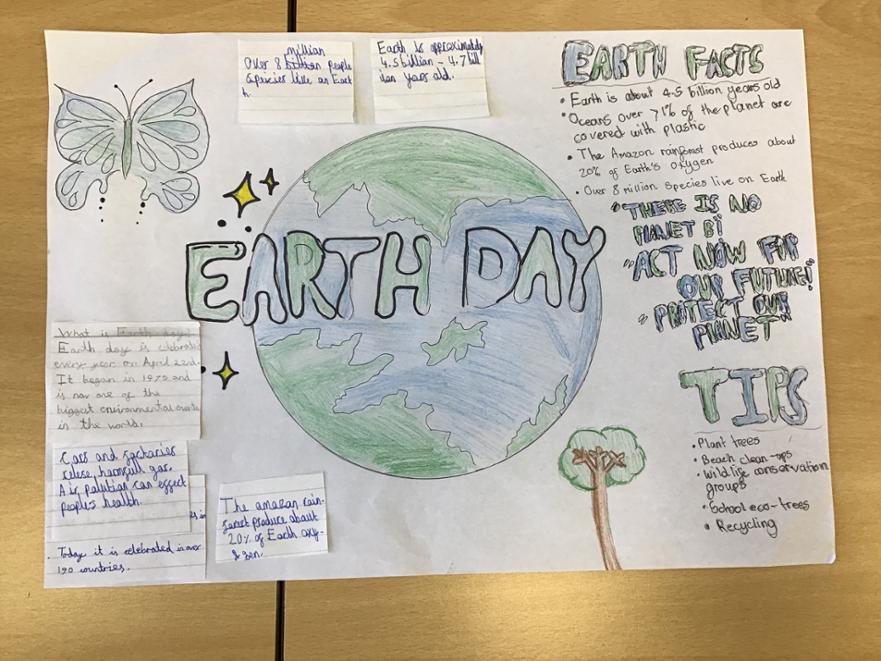 million
Over 8 billion people
& species live on Eart
h.
Earth is approximatly
4.5 billion - 4.7 bill
ion years old.
EARTH FACTS
• Earth is about 4.5 billion years old
• Oceans over 71% of the planet are
covered with plastic
• The Amazon rainforest produces about
20% of Earth's oxygen
• Over 8 million species live on Earth
"THERE IS NO
PLANET B!
"ACT NOW FOR
OUR FUTURE!"
" PROTECT OUR
PLANET"
EARTH DAY
What is Earth day?
Earth day is celebrated
every year on April 22nd.
It began in 1970 and
is now one of the
biggest environmental events
in the world.
Cars and factories
relise harmfull gas.
Air polution can effect
peoples health.
Today it is celebrated in over
190 countries.
The amazon rain-
forest produce about
20% of Earth oxy-
gen.
TIPS
• Plant trees
• Beach clean-ups
• Wildlife conservation
groups
• School eco-trees
• Recycling